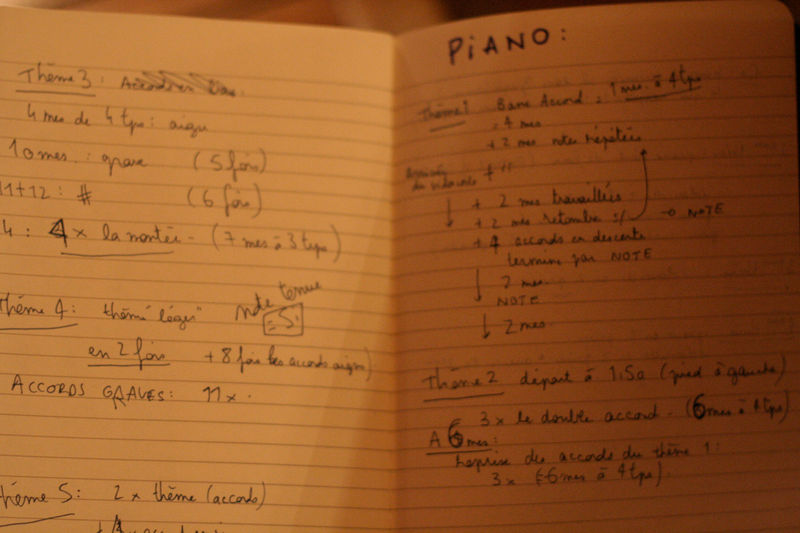 Thème 3: Accords
4 mes de 4 tps: aigu
10 mes.: grave (5 fois)
11+12: # (6 fois)
4: 4 x la montée - (7 mes à 3 tps)
Thème 4: thème "léger" note tenue
= 5.
en 2 fois + 8 fois les accords aigus)
ACCORDS GRAVES: 11x.
Thème 5: 2 x thème (accords)
PiANO:
Thème 1 Accord = 1 mes à 4 tps
= 4 mes
+ 2 mes notes répétées
+ 2 mes travaillées
+ 2 mes retombe → NOTE
+ 4 accords en descente
termine par NOTE
2 mes
NOTE
2 mes
Thème 2 départ à 1:50 (pied à gauche)
3x le double accord - (6 mes à 4 tps)
A 6 mes:
reprise des accords du thème 1:
3x (=6 mes à 4 tps).